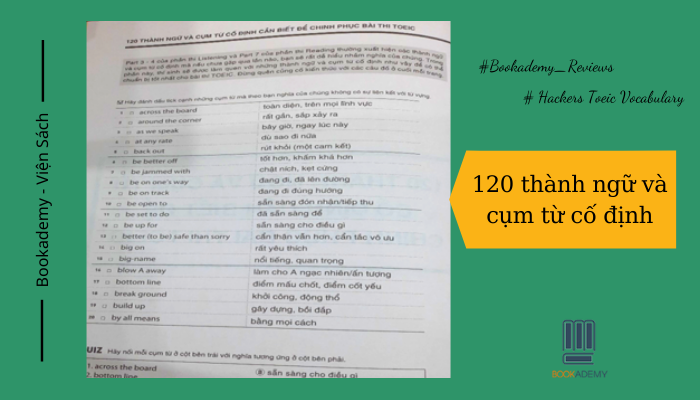 Bookademy - Viện Sách
120 THÀNH NGỮ VÀ CỤM TỪ CỐ ĐỊNH CẦN BIẾT ĐỂ CHINH PHỤC BÀI THI TOEIC
Part 3 - 4 của phần thi Listening và Part 7 của phần thi Reading thường xuất hiện các thành ngữ
và cụm từ cố định mà nếu chưa gặp qua lần nào, bạn sẽ rất dễ hiểu nhầm nghĩa của chúng. Trong
phần này, thí sinh sẽ được làm quen với những thành ngữ và cụm từ cố định như vậy để có thể
chuẩn bị tốt nhất cho bài thi TOEIC. Đừng quên củng cố kiến thức với các câu đố ở cuối mỗi trang.
Hãy đánh dấu tick cạnh những cụm từ mà theo bạn nghĩa của chúng không có sự liên kết với từ vựng.
1 across the board toàn diện, trên mọi lĩnh vực
2 around the corner rất gần, sắp xảy ra
3 as we speak bây giờ, ngay lúc này
4 at any rate dù sao đi nữa
5 back out rút khỏi (một cam kết)
6 be better off tốt hơn, khấm khá hơn
7 be jammed with chật ních, kẹt cứng
8 be on one's way đang đi, đã lên đường
9 be on track đang đi đúng hướng
10 be open to sẵn sàng đón nhận/tiếp thu
11 be set to do đã sẵn sàng để
12 be up for sẵn sàng cho điều gì
13 better (to be) safe than sorry cẩn thận vẫn hơn, cẩn tắc vô ưu
14 big on rất yêu thích
15 big-name nổi tiếng, quan trọng
16 blow A away làm cho A ngạc nhiên/ấn tượng
17 bottom line điểm mấu chốt, điểm cốt yếu
18 break ground khởi công, động thổ
19 build up gây dựng, bồi đắp
20 by all means bằng mọi cách
UIZ Hãy nối mỗi cụm từ ở cột bên trái với nghĩa tương ứng ở cột bên phải.
1. across the board ⓐ sẵn sàng cho điều gì
2. bottom line
#Bookademy_Reviews
# Hackers Toeic Vocabulary
120 thành ngữ và
cụm từ cố định
BOOKADEMY